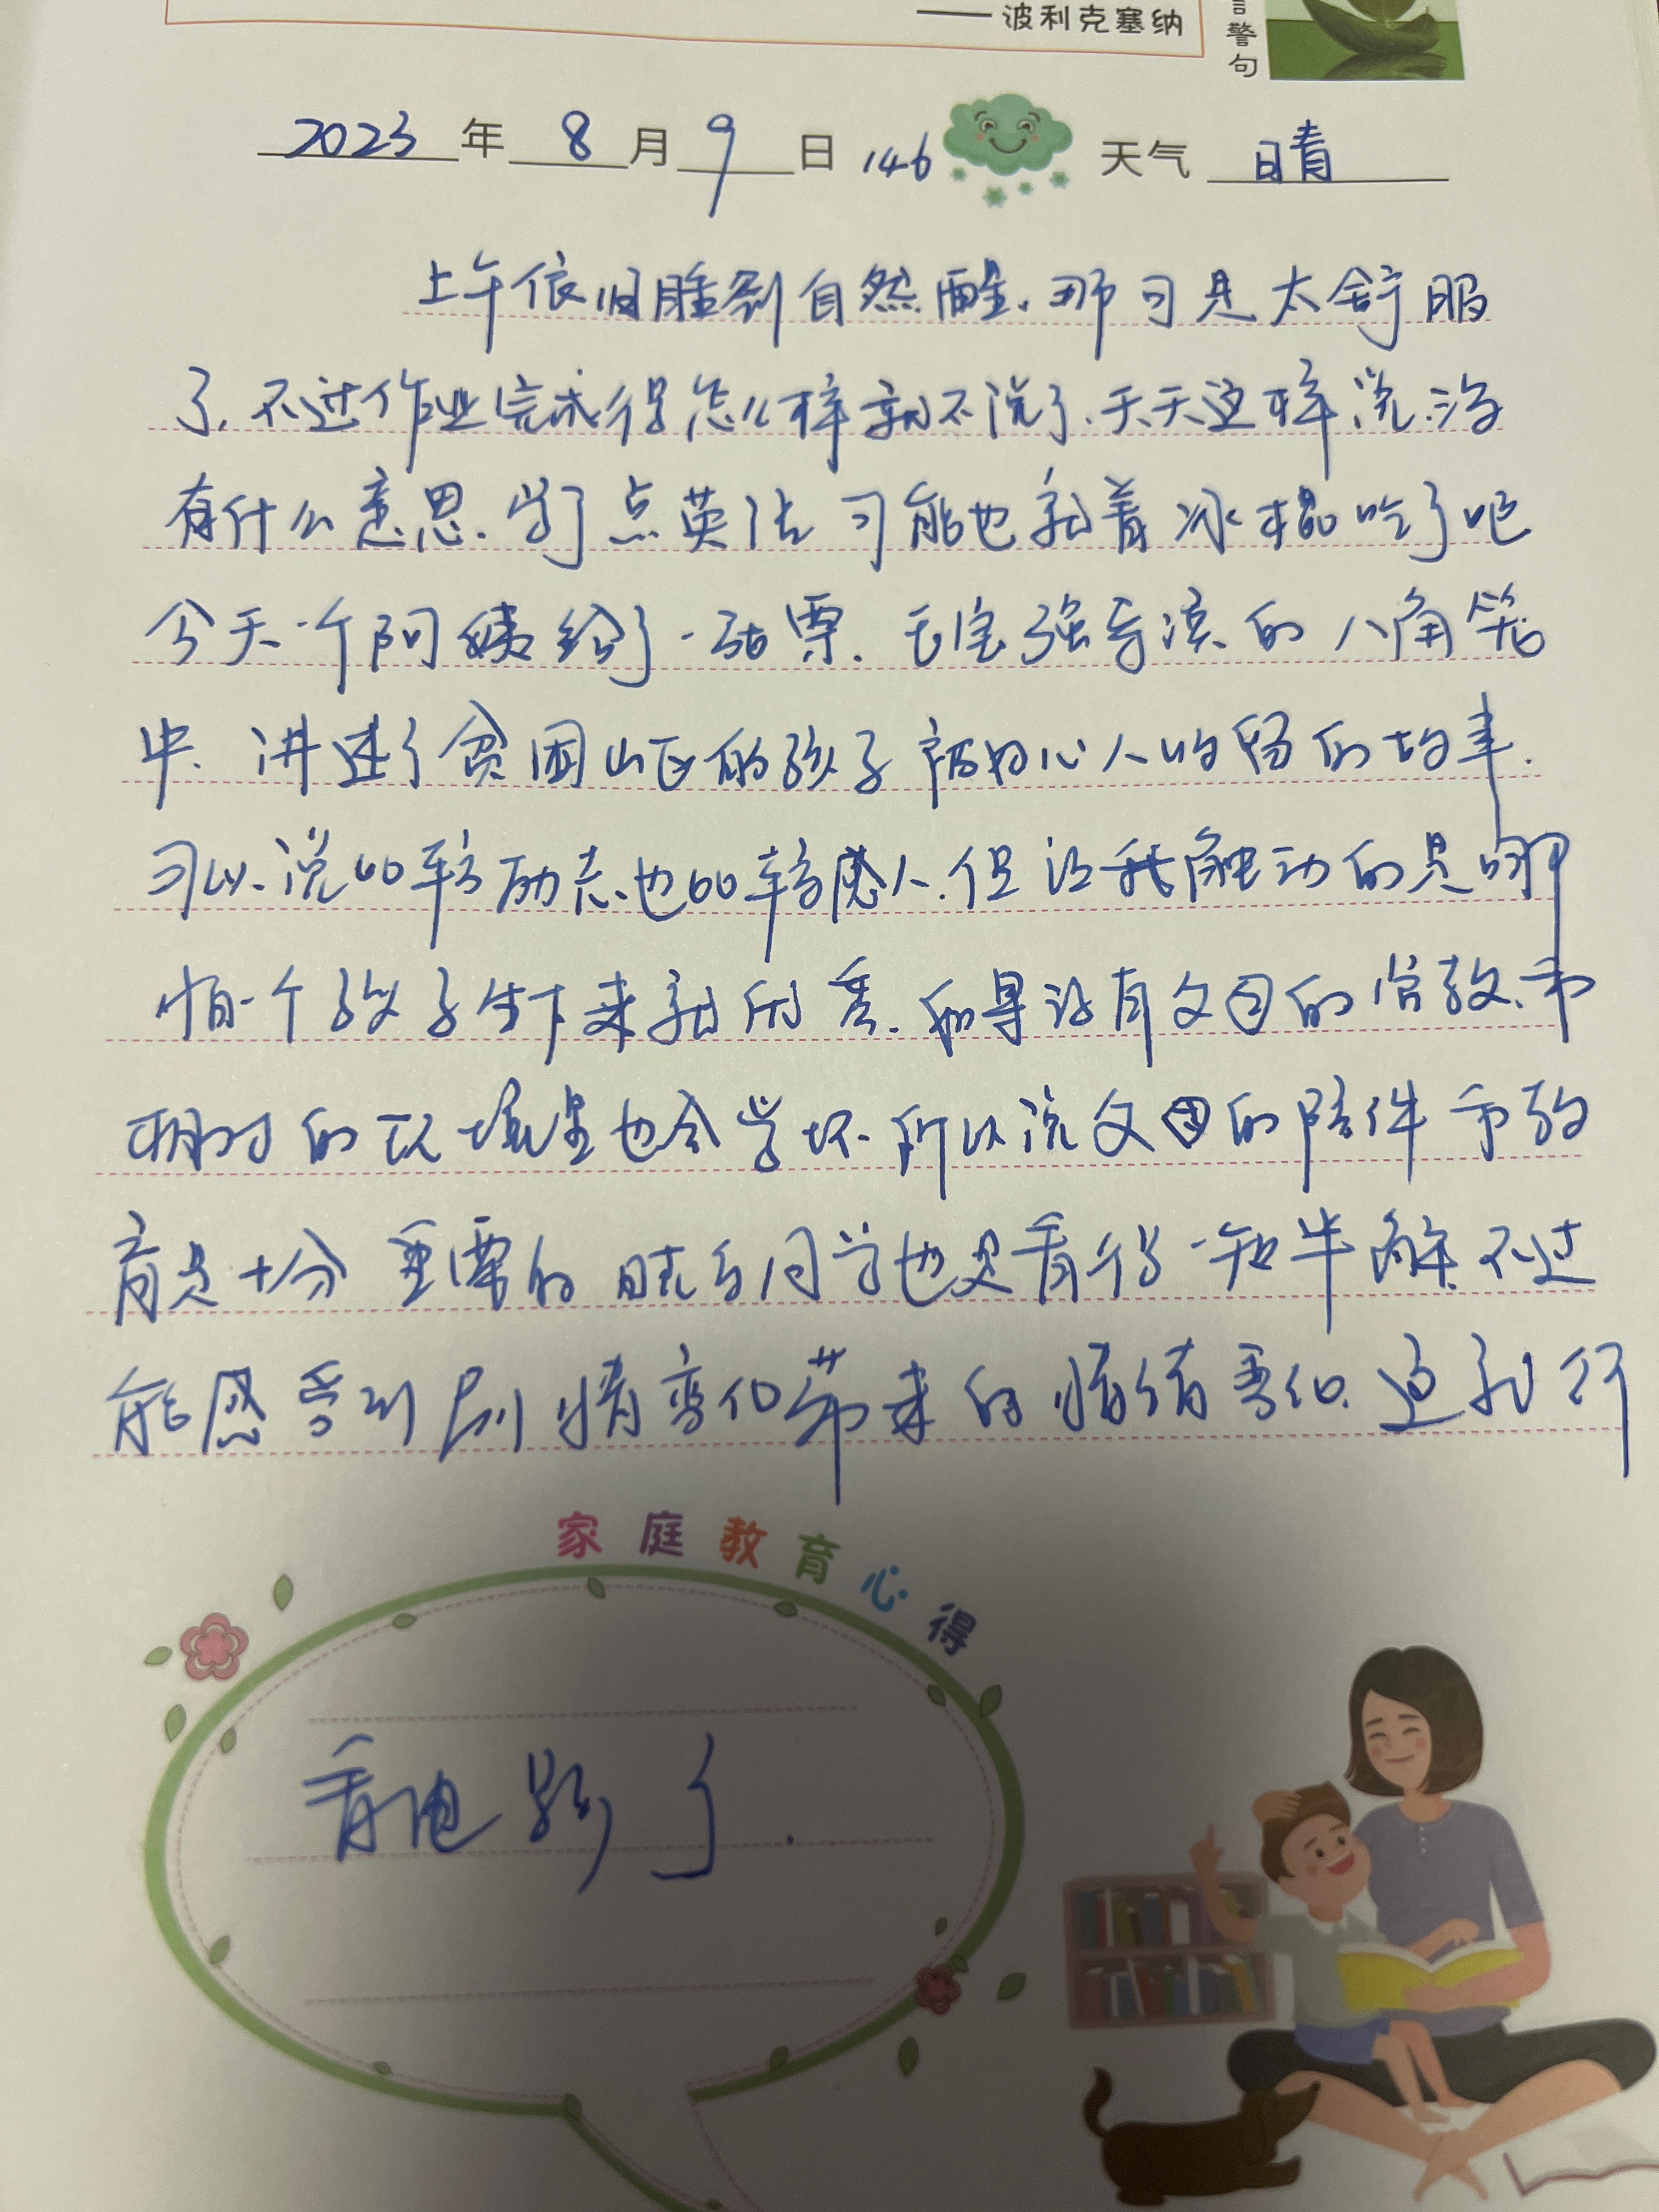 —— 波利克塞纳
言警句
2023 年 8 月 9 日 146 天气 晴
上午依旧睡到自然醒.那可是太舒服
了.不过作业完成得怎么样就不说了.天天这样说.没
有什么意思.学了点英语可能也就着冰棍吃了吧
今天一个阿姨给了一张票.王宝强导演的八角笼
中.讲述了贫困山区的孩子被好心人收留的故事.
可以说比较励志也比较感人.但让我触动的是哪
怕一个孩子生下来就所善.如果没有父母的管教.和
的环境里也会学坏.所以说父母的陪伴和教
育是十分重要的 同学也是看得一知半解.不过
能感受到剧情变化带来的情绪变化.这就行
家庭教育心得
看电影了.